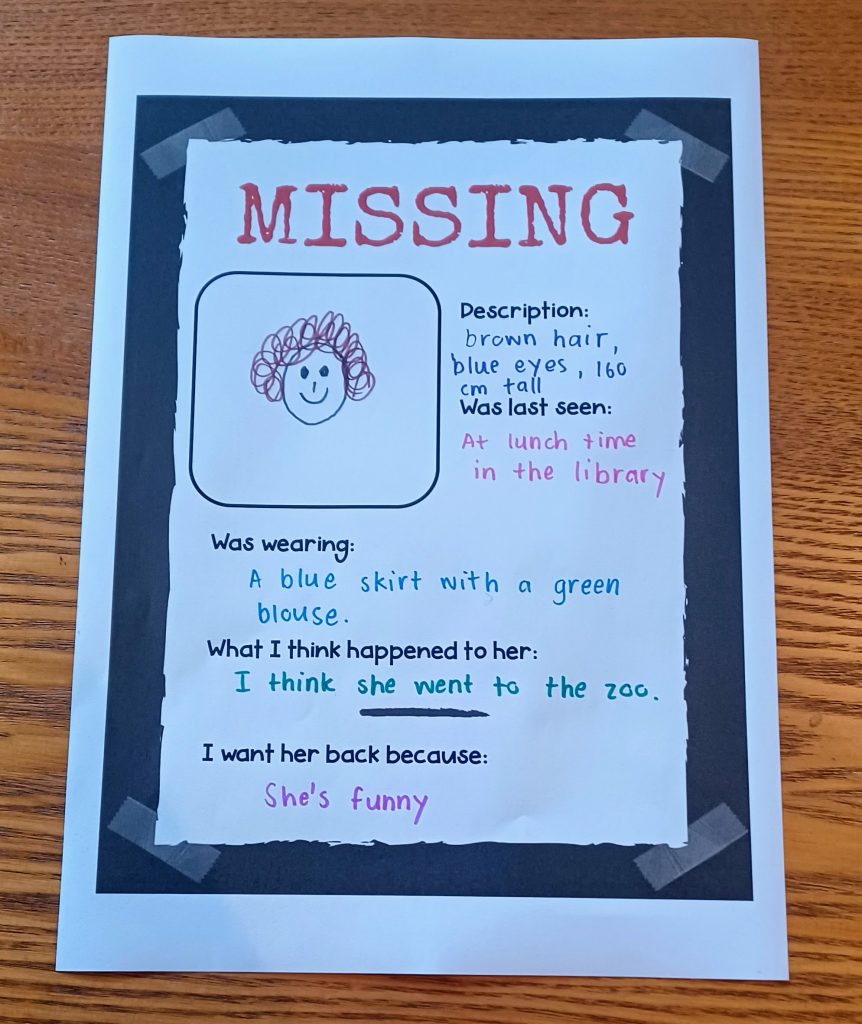 MISSING
Description:
brown hair,
blue eyes, 160
cm tall
Was last seen:
At lunch time
in the library
Was wearing:
A blue skirt with a green
blouse.
What I think happened to her:
I think she went to the zoo.
I want her back because:
She's funny